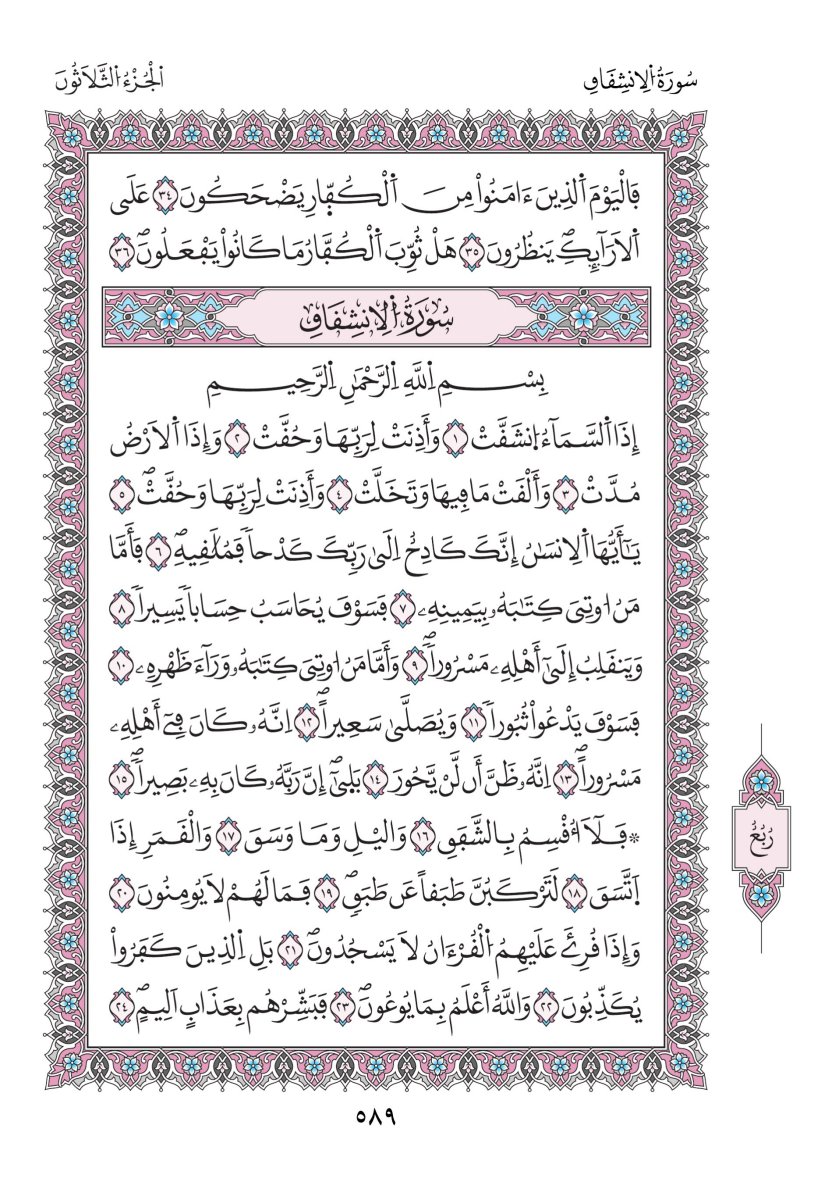 سُورَةُ اُلِانشِقَاقِ
اَلْجُزْءُ اُلثَّلَاثُونَ
فَالْيَوْمَ اَلذِينَ ءَامَنُواْ مِنَ اَلْكُفّ۪ارِ يَضْحَكُونَ ٣٤ عَلَى
اَلَارَآئِكِ يَنظُرُونَۖ ٣٥ هَلْ ثُوِّبَ اَلْكُفَّارُ مَا كَانُواْ يَفْعَلُونَۖ ٣٦
سُورَةُ اُلِانشِقَاقِ
بِسْمِ اِللَّهِ اِلرَّحْمَٰنِ اِلرَّحِيمِ
إِذَا اَلسَّمَآءُ اُ۪نشَقَّتْ ١ وَأَذِنَتْ لِرَبِّهَا وَحُقَّتْ ٢ وَإِذَا اَلَارْضُ
مُدَّتْ ٣ وَأَلْقَتْ مَا فِيهَا وَتَخَلَّتْ ٤ وَأَذِنَتْ لِرَبِّهَا وَحُقَّتْۖ ٥
يَٰٓأَيُّهَا اَلِانسَٰنُ إِنَّكَ كَادِحٌ اِلَىٰ رَبِّكَ كَدْحاٗ فَمُلَٰقِيهِۖ ٦ فَأَمَّا
مَنُ ا۟وتِيَ كِتَٰبَهُۥ بِيَمِينِهِۦ ٧ فَسَوْفَ يُحَاسَبُ حِسَاباٗ يَسِيراٗ ٨
وَيَنقَلِبُ إِلَىٰٓ أَهْلِهِۦ مَسْرُوراٗۖ ٩ وَأَمَّا مَنُ ا۟وتِيَ كِتَٰبَهُۥ وَرَآءَ ظَهْرِهِۦ ١٠
فَسَوْفَ يَدْعُواْ ثُبُوراٗ ١١ وَيُصَلَّىٰ سَعِيراًۖ ١٢ اِنَّهُۥ كَانَ فِےٓ أَهْلِهِۦ
مَسْرُوراًۖ ١٣ اِنَّهُۥ ظَنَّ أَن لَّنْ يَّحُورَ ١٤ بَلَىٰٓۖ إِنَّ رَبَّهُۥ كَانَ بِهِۦ بَصِيراٗۖ ١٥
۞ فَلَآ أُقْسِمُ بِالشَّفَقِ ١٦ وَاليْلِ وَمَا وَسَقَ ١٧ وَالْقَمَرِ إِذَا
اَ۪تَّسَقَ ١٨ لَتَرْكَبُنَّ طَبَقاً عَن طَبَقٖۖ ١٩ فَمَا لَهُمْ لَا يُومِنُونَ ٢٠
وَإِذَا قُرِئَ عَلَيْهِمُ اُلْقُرْءَانُ لَا يَسْجُدُونَۖ ٢١ بَلِ اِلذِينَ كَفَرُواْ
يُكَذِّبُونَ ٢٢ وَاللَّهُ أَعْلَمُ بِمَا يُوعُونَۖ ٢٣ فَبَشِّرْهُم بِعَذَابٍ اَلِيمٍۖ ٢٤
رُبُعُ
٥٨٩